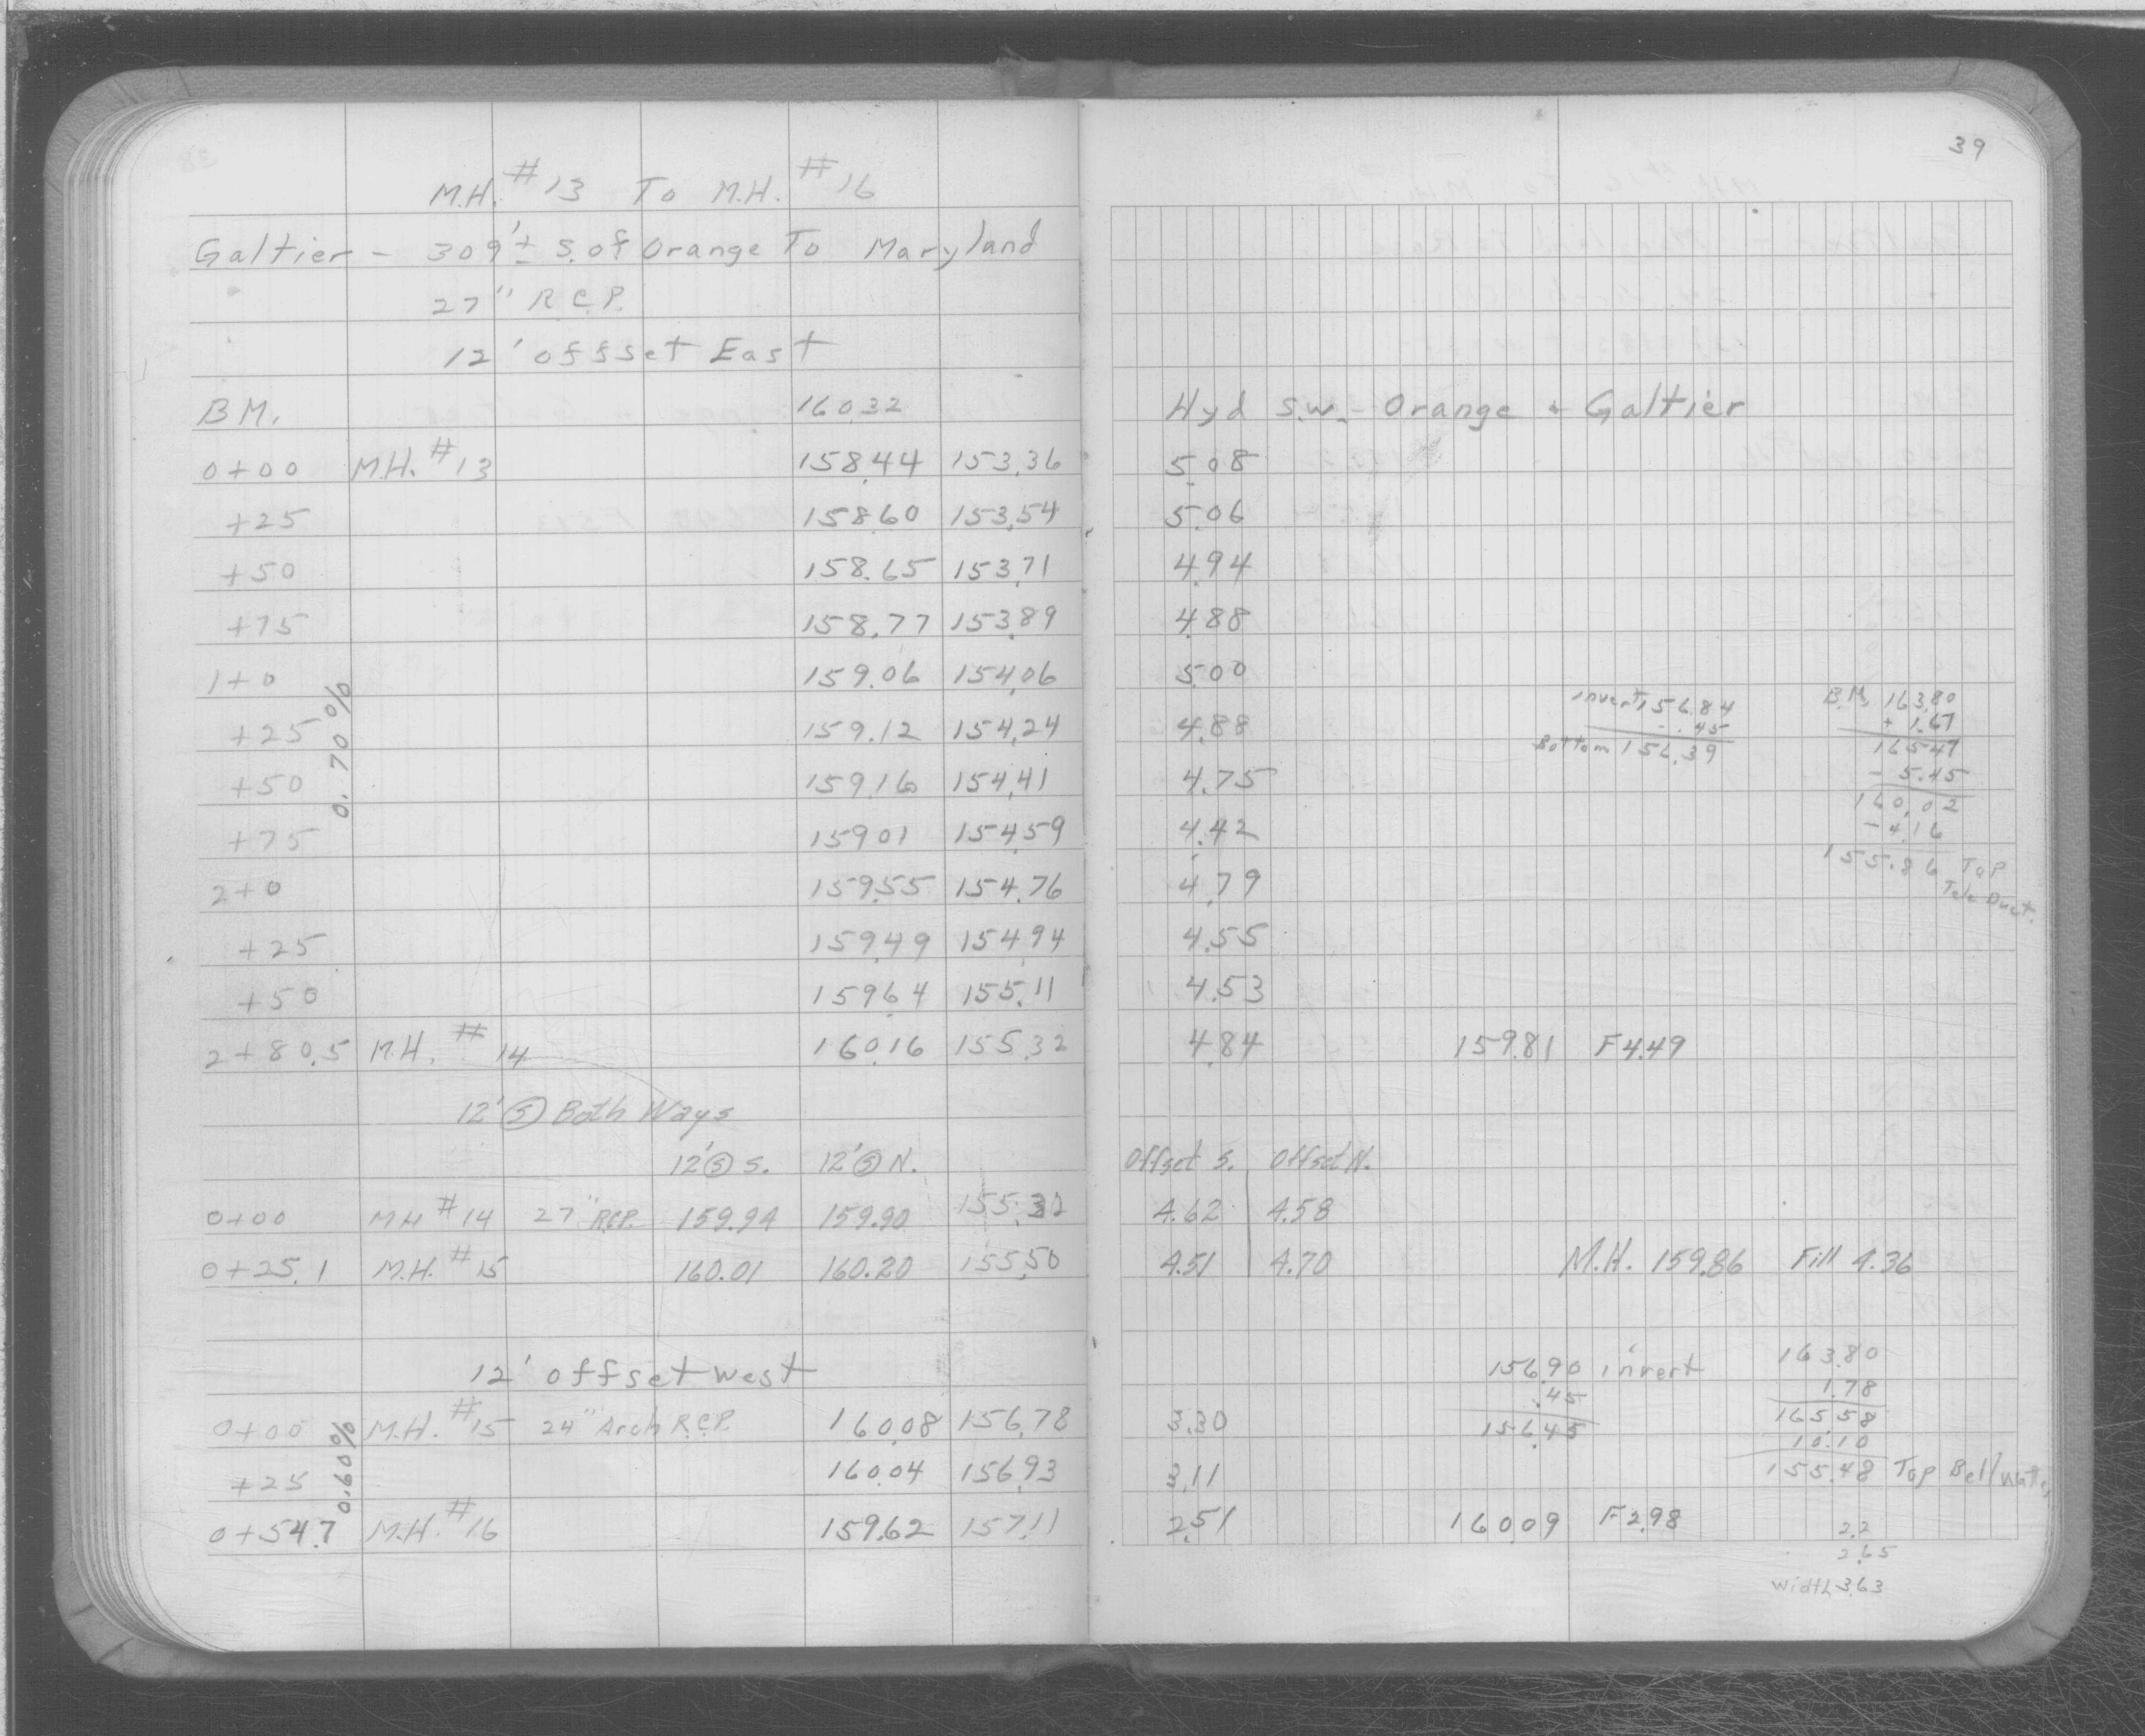 39
M.H. #13 To M.H. #16
Galtier - 309'± S. of Orange To Maryland
27" R.C.P.
12' offset East
B.M. 160.32 Hyd S.W. - Orange + Galtier
0+00 M.H. #13 158.44 153.36 5.08
+25 158.60 153.54 5.06
+50 158.65 153.71 4.94
+75 158.77 153.89 4.88
1+0 159.06 154.06 5.00
+25 159.12 154.24 4.88
+50 159.16 154.41 4.75
+75 159.01 154.59 4.42
2+0 159.55 154.76 4.79
+25 159.49 154.94 4.55
+50 159.64 155.11 4.53
0.70%
2+80.5 M.H. #14 160.16 155.32 4.84 159.81 F 4.49
invert 156.84
- .45
Bottom 156.39
B.M. 163.80
+ 1.67
165.47
- 5.45
160.02
- 4.16
155.86 Top
Tele Duct.
12' Ⓢ Both Ways
12' Ⓢ S. 12' Ⓢ N. Offset S. Offset N.
0+00 MH #14 27" RCP. 159.94 159.90 155.32 4.62 4.58
0+25.1 M.H. #15 160.01 160.20 155.50 4.51 4.70 M.H. 159.86 Fill 4.36
12' offset west
0+00 M.H. #15 24" Arch R.C.P. 160.08 156.78 3.30
+25 160.04 156.93 3.11
0.60%
0+54.7 M.H. #16 159.62 157.11 2.51 160.09 F 2.98
156.90 invert
.45
156.45
163.80
1.78
165.58
10.10
155.48 Top Bell
2.2
2.65
width 3.63